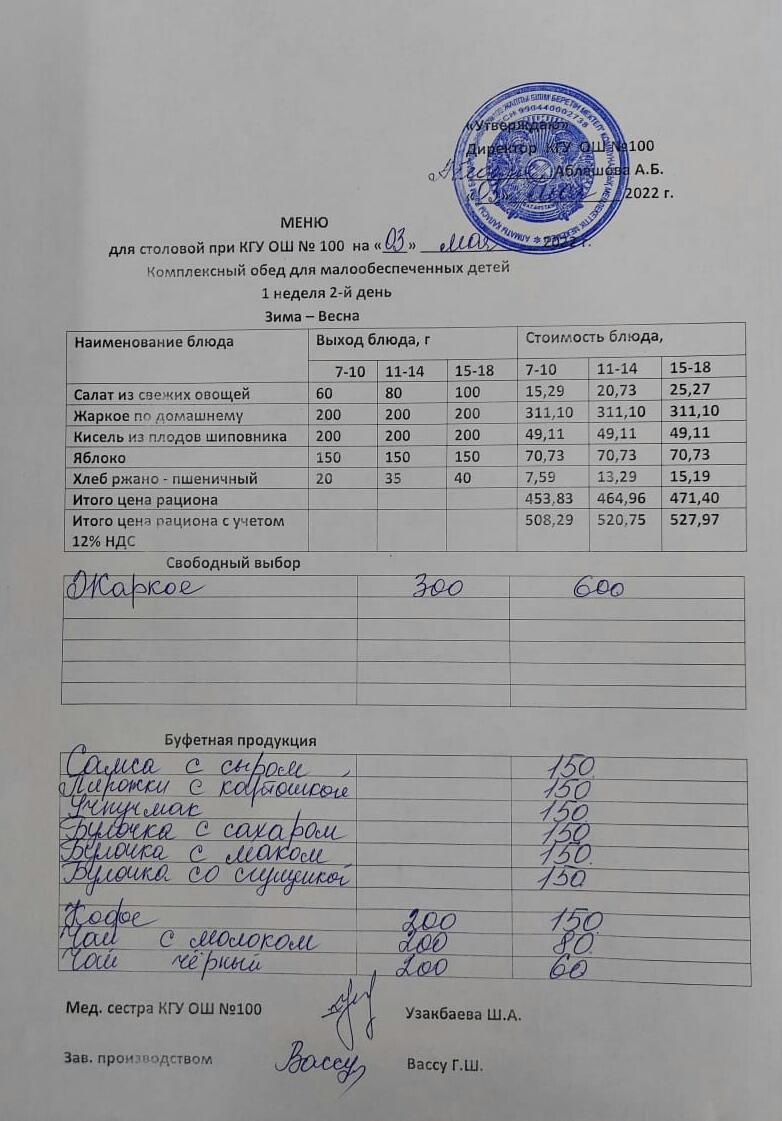 «Утверждаю»
Директор КГУ ОШ №100
Аблешова А.Б.
«03» мая 2022 г.
МЕНЮ
для столовой при КГУ ОШ № 100 на «03» мая 2022 г.
Комплексный обед для малообеспеченных детей
1 неделя 2-й день
Зима – Весна
Наименование блюда Выход блюда, г Стоимость блюда,
7-10 11-14 15-18 7-10 11-14 15-18
Салат из свежих овощей 60 80 100 15,29 20,73 25,27
Жаркое по домашнему 200 200 200 311,10 311,10 311,10
Кисель из плодов шиповника 200 200 200 49,11 49,11 49,11
Яблоко 150 150 150 70,73 70,73 70,73
Хлеб ржано - пшеничный 20 35 40 7,59 13,29 15,19
Итого цена рациона 453,83 464,96 471,40
Итого цена рациона с учетом 508,29 520,75 527,97
12% НДС
Свободный выбор
Жаркое 300 600
Буфетная продукция
Самса с сыром 150
Пирожки с картошкой 150
Учпучмак 150
Булочка с сахаром 150
Булочка с маком 150
Булочка со сгущенкой 150
Кофе 200 150
Чай с молоком 200 80
Чай чёрный 200 60
Мед. сестра КГУ ОШ №100 Узакбаева Ш.А.
Зав. производством Вассу Вассу Г.Ш.